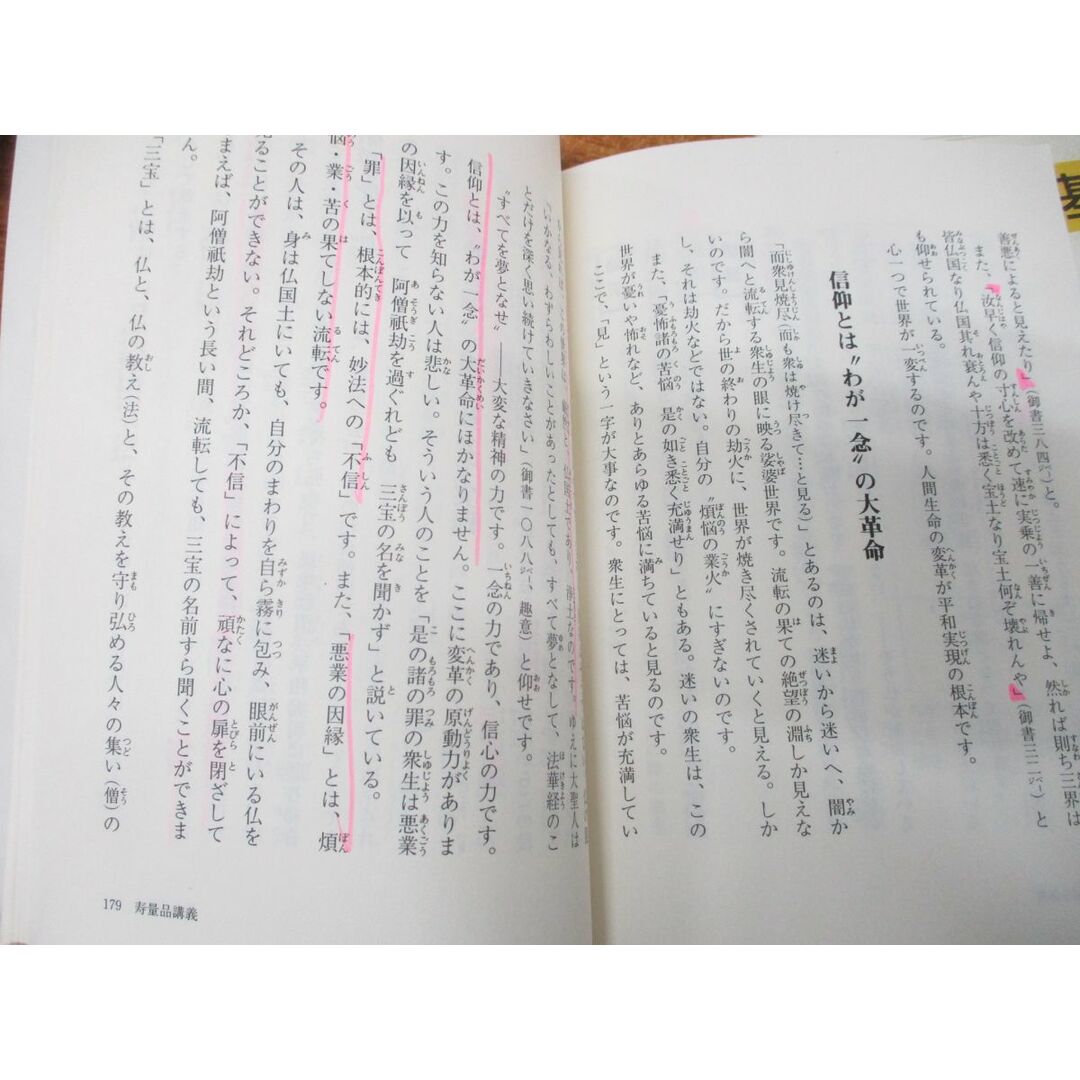 善悪によると見えたり」（御書三八四㌻）と。
また、「汝早く信仰の寸心を改めて速に実乗の一善に帰せよ、然れば則ち三界は
皆仏国なり仏国其れ衰んや十方は悉く宝土なり宝土何ぞ壊れんや」（御書三二㌻）と
も仰せられている。
心一つで世界が一変するのです。人間生命の変革が平和実現の根本です。
信仰とは〝わが一念〟の大革命
「而衆見焼尽（而も衆は焼け尽きて…と見る）」とあるのは、迷いから迷いへ、闇か
ら闇へと流転する衆生の眼に映る娑婆世界です。流転の果ての絶望の淵しか見えな
いのです。だから世の終わりの劫火に、世界が焼き尽くされていくと見える。しか
し、それは劫火などではない。自分の〝煩悩の業火〟にすぎないのです。
また、「憂怖諸の苦悩 是の如き悉く充満せり」ともある。迷いの衆生は、この
世界が憂いや怖れなど、ありとあらゆる苦悩に満ちていると見るのです。
ここで、「見」という一字が大事なのです。衆生にとっては、苦悩が充満してい
浄土なのです。ゆえに大聖人は
「いかなる、わずらわしいことがあったとしても、すべて夢となして、法華経のこ
とだけを深く思い続けていきなさい」（御書一〇八八㌻、趣意）と仰せです。
〝すべてを夢となせ〟――大変な精神の力です。一念の力であり、信心の力です。
信仰とは、〝わが一念〟の大革命にほかなりません。ここに変革の原動力がありま
す。この力を知らない人は悲しい。そういう人のことを「是の諸の罪の衆生は悪業
の因縁を以って 阿僧祇劫を過ぐれども 三宝の名を聞かず」と説いている。
「罪」とは、根本的には、妙法への「不信」です。また、「悪業の因縁」とは、煩
悩・業・苦の果てしない流転です。
その人は、身は仏国土にいても、自分のまわりを自ら霧に包み、眼前にいる仏を
見ることができない。それどころか、「不信」によって、頑なに心の扉を閉ざして
まえば、阿僧祇劫という長い間、流転しても、三宝の名前すら聞くことができま
ん。
「三宝」とは、仏と、仏の教え（法）と、その教えを守り弘める人々の集い（僧）の
179 寿量品講義